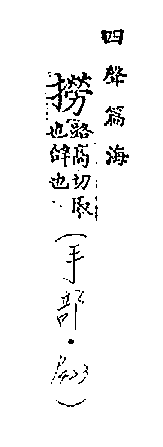 四聲篇海
撈 路高切取
也辭也
(手部.